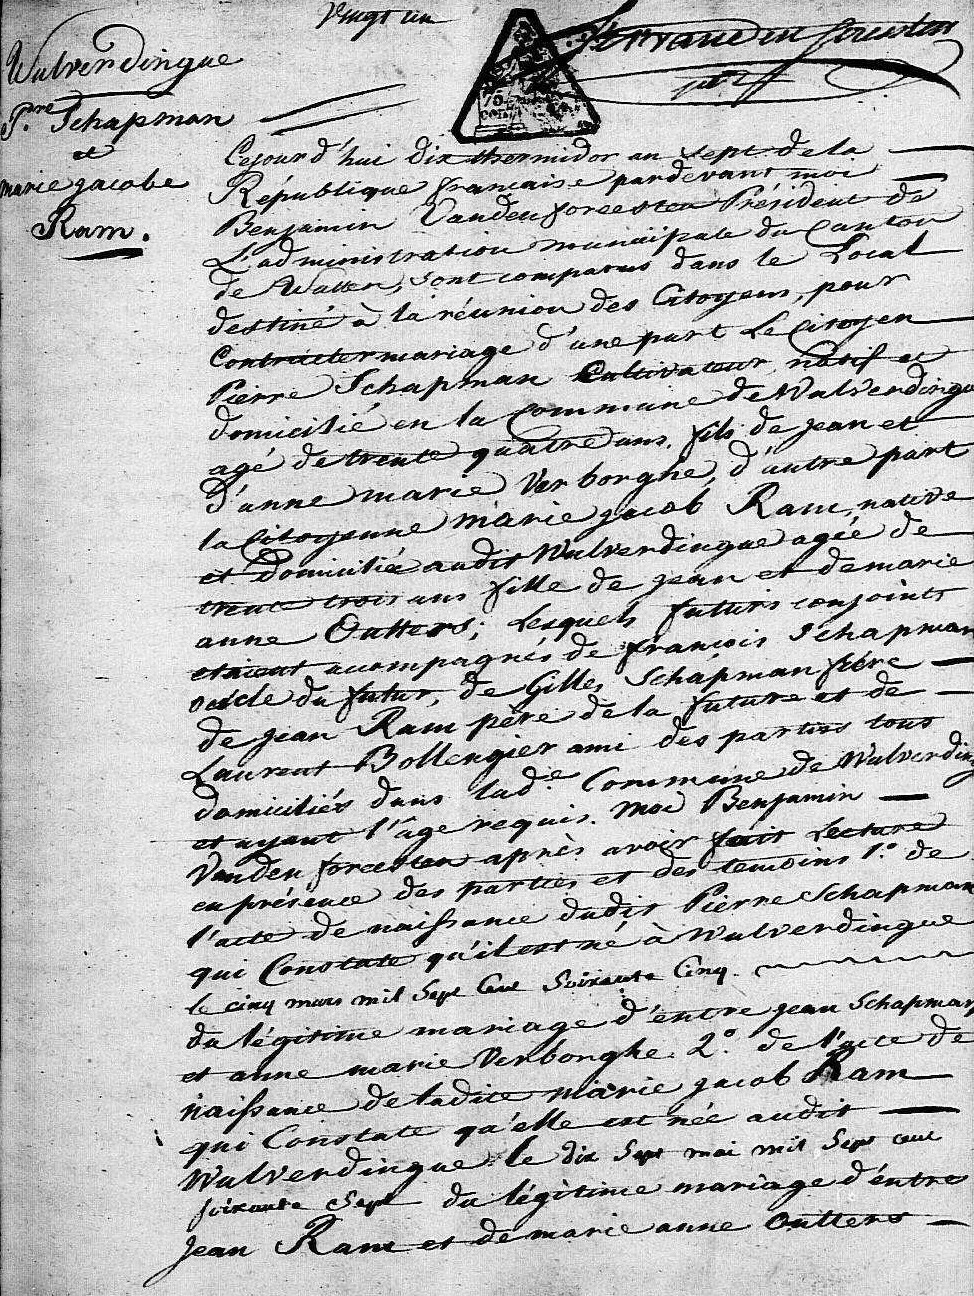 Vingt un
Wulverdingue
P.re Schapman
et
marie jacobe
Ram.
Cejourd'hui dix thermidor an sept de la
République française pardevant moi
Benjamin Vanden forcesten Président de
L'administration municipale du Canton
de Watten, sont comparus dans le Local
destiné à la réunion des Citoyens, pour
Contracter mariage d'une part Le Citoyen
Pierre Schapman Cultivateur, natif et
domicilié en la Commune de Wulverdingue
agé de trente quatre ans, fils de jean et
D'anne marie Verborghe, d'autre part
la Citoyenne marie jacob Ram, native
et Domiciliée audit Wulverdingue agée de
trente trois ans fille de jean et de marie
anne Outters; Lesquels futurs conjoints
etaient acompagnés de françois Schapman
oncle du futur, de Gilles Schapman frére
de jean Ram père de la future et de
Laurent Bollengier ami des parties tous
domiciliés dans lad.e Commune de Wulverding
et ayant l'âge requis. moi Benjamin
Vanden forcesten après avoir fait Lecture
en présence des parties et des temoins 1.o de
l'acte de naissance dudit Pierre Schapman
qui Constate qu'il est né à Wulverdingue
le cinq mars mil Sept Cent Soixante Cinq.
du légitime mariage d'entre jean Schapman
et anne marie Verborghe. 2.o de l'acte de
naissance de ladite marie jacob Ram
qui Constate qu'elle est née audit
Wulverdingue le dix Sept mai mil Sept cent
soixante Sept du légitime mariage d'entre
jean Ram et de marie anne Outters